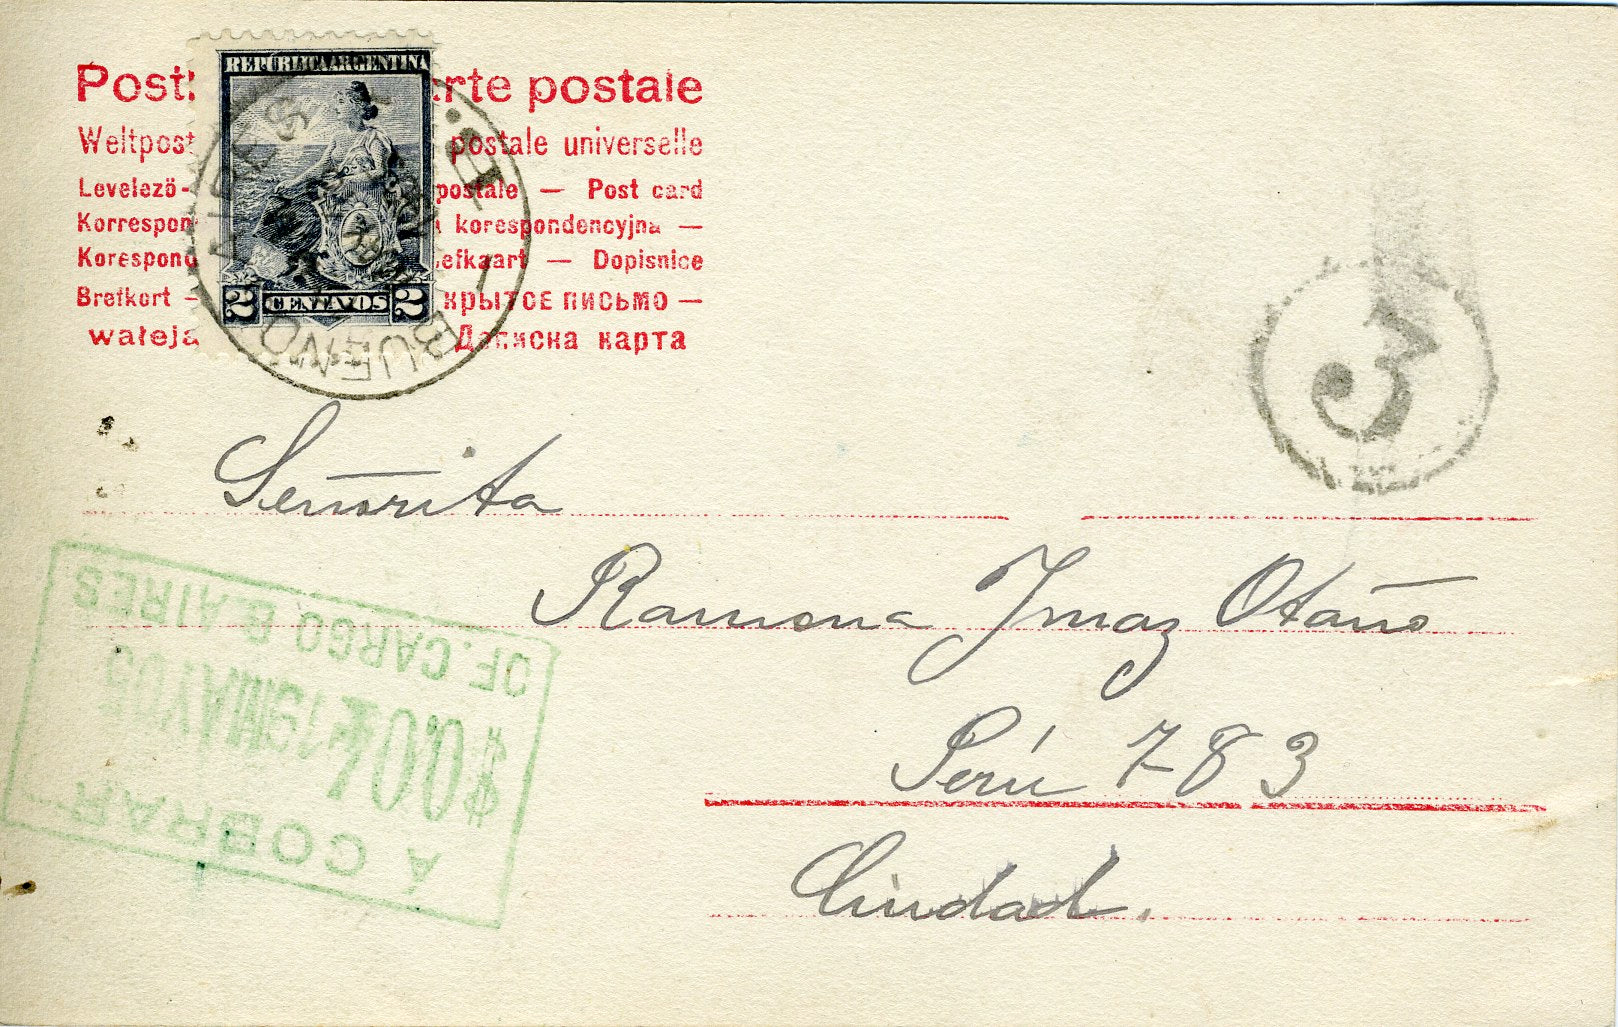 Post
rte postale
Weltpost
postale universelle
Levelező-
postale — Post card
Korrespon
korespondencyjna —
Korespond
efkaart — Dopisnice
Brefkort —
крытое письмо —
waleja
Дописна карта
REPÚBLICA ARGENTINA
2 CENTAVOS 2
BUENOS AIRES
3
Señorita
Ramona Imaz Otaño
Perú 783
Ciudad.
A COBRAR
$
OF. CARGO B. AIRES